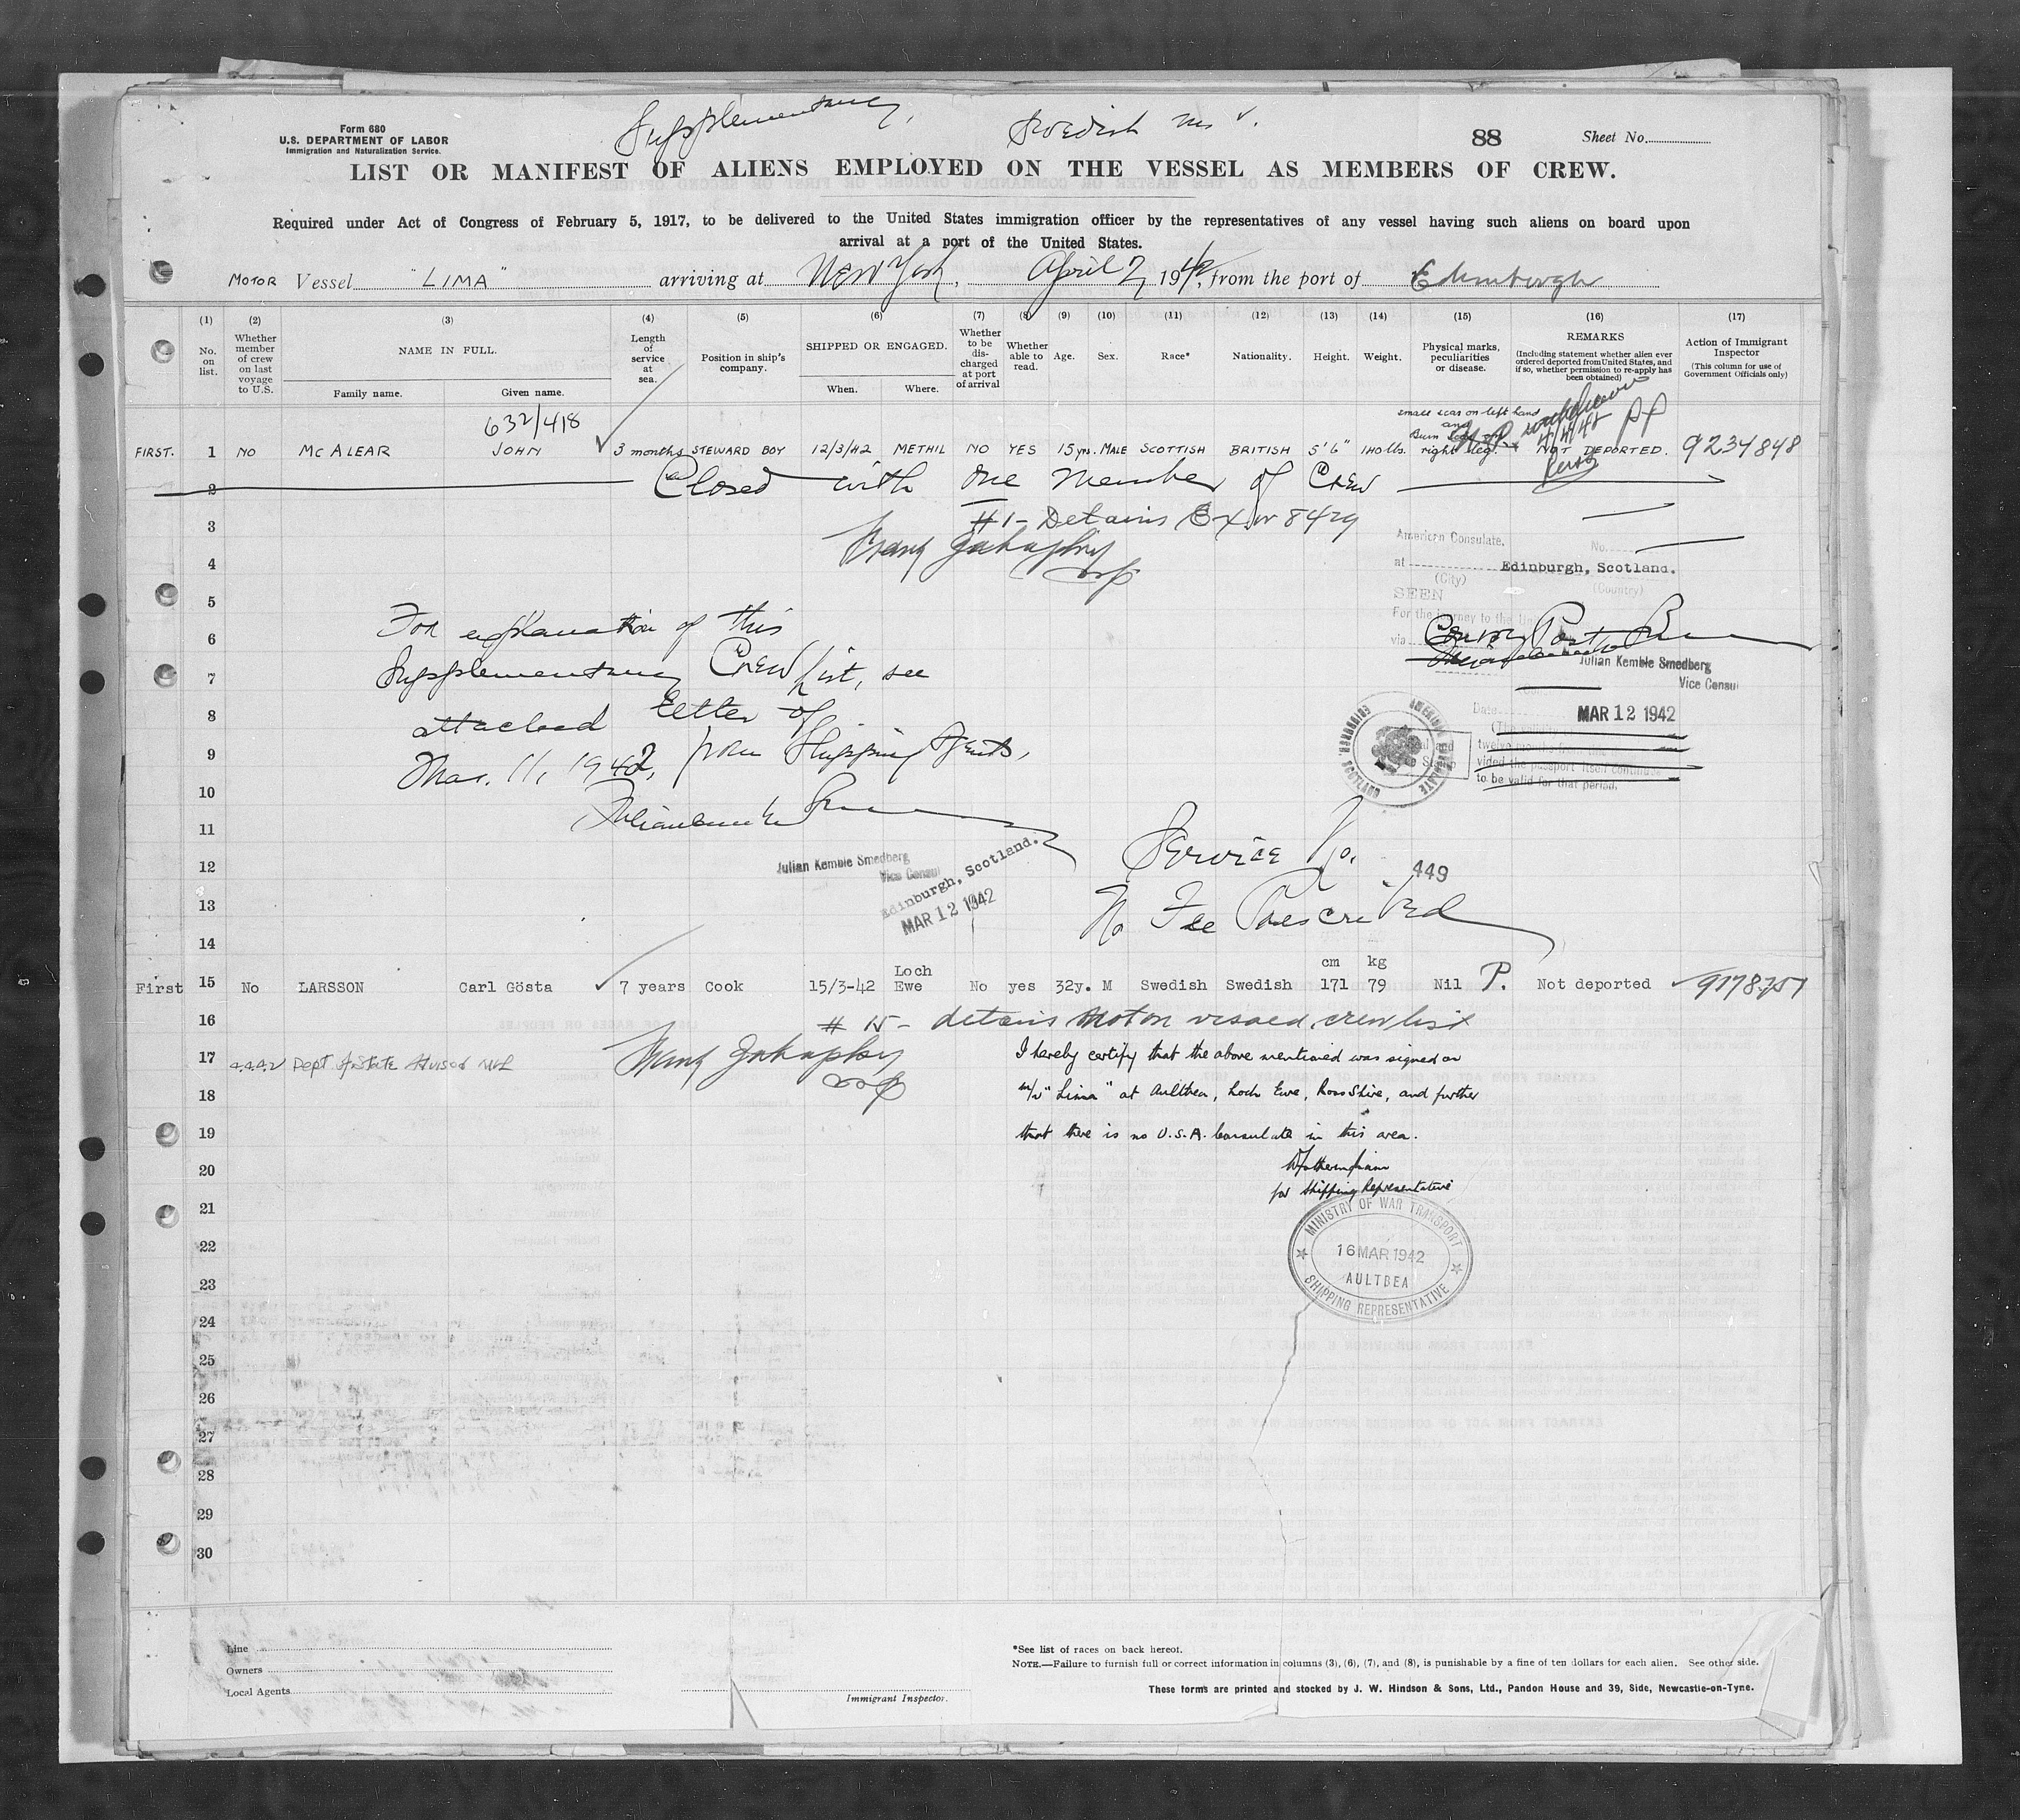 Form 680
U.S. DEPARTMENT OF LABOR
Immigration and Naturalization Service.
Supplementary, Swedish M. V.
88 Sheet No.
LIST OR MANIFEST OF ALIENS EMPLOYED ON THE VESSEL AS MEMBERS OF CREW.
Required under Act of Congress of February 5, 1917, to be delivered to the United States immigration officer by the representatives of any vessel having such aliens on board upon
arrival at a port of the United States.
MOTOR Vessel "LIMA" arriving at New York, April 2, 1942, from the port of Edinburgh
(1) (2) (3) (4) (5) (6) (7) (8) (9) (10) (11) (12) (13) (14) (15) (16) (17)
No. on list.
Whether member of crew on last voyage to U.S.
NAME IN FULL.
Family name. Given name.
Length of service at sea.
Position in ship's company.
SHIPPED OR ENGAGED.
When. Where.
Whether to be discharged at port of arrival
Whether able to read.
Age.
Sex.
Race*
Nationality.
Height.
Weight.
Physical marks, peculiarities or disease.
REMARKS
(Including statement whether alien ever ordered deported from United States, and if so, whether permission to re-apply has been obtained)
Action of Immigrant Inspector
(This column for use of Government Officials only)
632/418
small scar on left hand
and
FIRST. 1 NO McALEAR JOHN 3 months STEWARD BOY 12/3/42 METHIL NO YES 15 yrs. MALE SCOTTISH BRITISH 5' 6" 140 lbs. right leg. NOT DEPORTED. 9234848
2 Closed with one Member of Crew
3 #1 - Detains
4
American Consulate. No.
at Edinburgh, Scotland.
(City) (Country)
5
SEEN
For the journey to the
via
6 For explanation of this
7 Supplementary Crew List, see
Julian Kemble Smedberg
Vice Consul
8 attached letter of
Date MAR 12 1942
9 Mar. 11, 1942, from Shipping Agents,
twelve months
vided the passport itself continues
to be valid for that period.
AMERICAN CONSULATE EDINBURGH SCOTLAND
10
11
12 Julian Kemble Smedberg
Vice Consul
Edinburgh, Scotland.
MAR 12 1942
Service No. 449
13 No Fee Prescribed
14
cm kg
First 15 No LARSSON Carl Gösta 7 years Cook 15/3-42 Loch Ewe No yes 32y. M Swedish Swedish 171 79 Nil P. Not deported
16 # 15 - detains Motor vessel crew list
17 4.4.42 Dept of State Advised
I hereby certify that the above mentioned was signed on
18 m/v "Lima" at Aultbea, Loch Ewe, Ross Shire, and further
19 that there is no U.S.A. Consulate in this area.
20 for Shipping Representative
21
22
23
24
25
26
27
28
29
30
MINISTRY OF WAR TRANSPORT
16 MAR 1942
AULTBEA
SHIPPING REPRESENTATIVE
Line
Owners
Local Agents
Immigrant Inspector.
*See list of races on back hereof.
NOTE.—Failure to furnish full or correct information in columns (3), (6), (7), and (8), is punishable by a fine of ten dollars for each alien. See other side.
These forms are printed and stocked by J. W. Hindson & Sons, Ltd., Pandon House and 39, Side, Newcastle-on-Tyne.